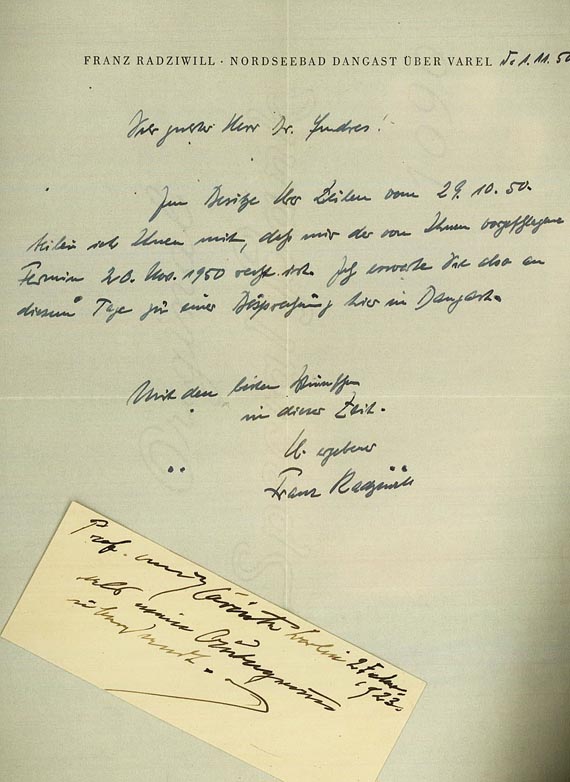 FRANZ RADZIWILL · NORDSEEBAD DANGAST ÜBER VAREL d. 1.11.50
Sehr geehrter Herr Dr. Endres!
Im Besitze Ihrer Zeilen vom 29.10.50.
teile ich Ihnen mit, daß mir der von Ihnen vorgeschlagene
Termin 20. Nov. 1950 recht ist. Ich erwarte Sie also an
diesem Tage zu einer Besprechung hier in Dangast.
Mit den besten Wünschen
in dieser Zeit.
Ihr ergebener
Franz Radziwill
Prof. Lovis Corinth Berlin
als meine
1923.